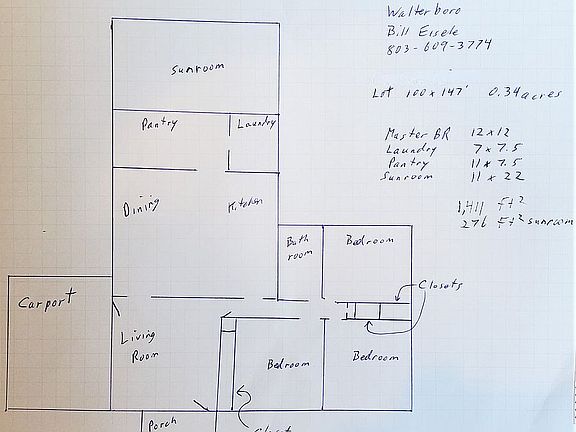 Walterboro
Bill Eisele
803-609-3774
Lot 100 x 147' 0.34 acres
Master BR 12 x 12
Laundry 7 x 7.5
Pantry 11 x 7.5
Sunroom 11 x 22
1,411 ft²
276 ft² sunroom
Sunroom
Pantry
Laundry
Dining
Kitchen
Bath
room
Bedroom
Closets
Carport
Living
Room
Bedroom
Bedroom
Porch